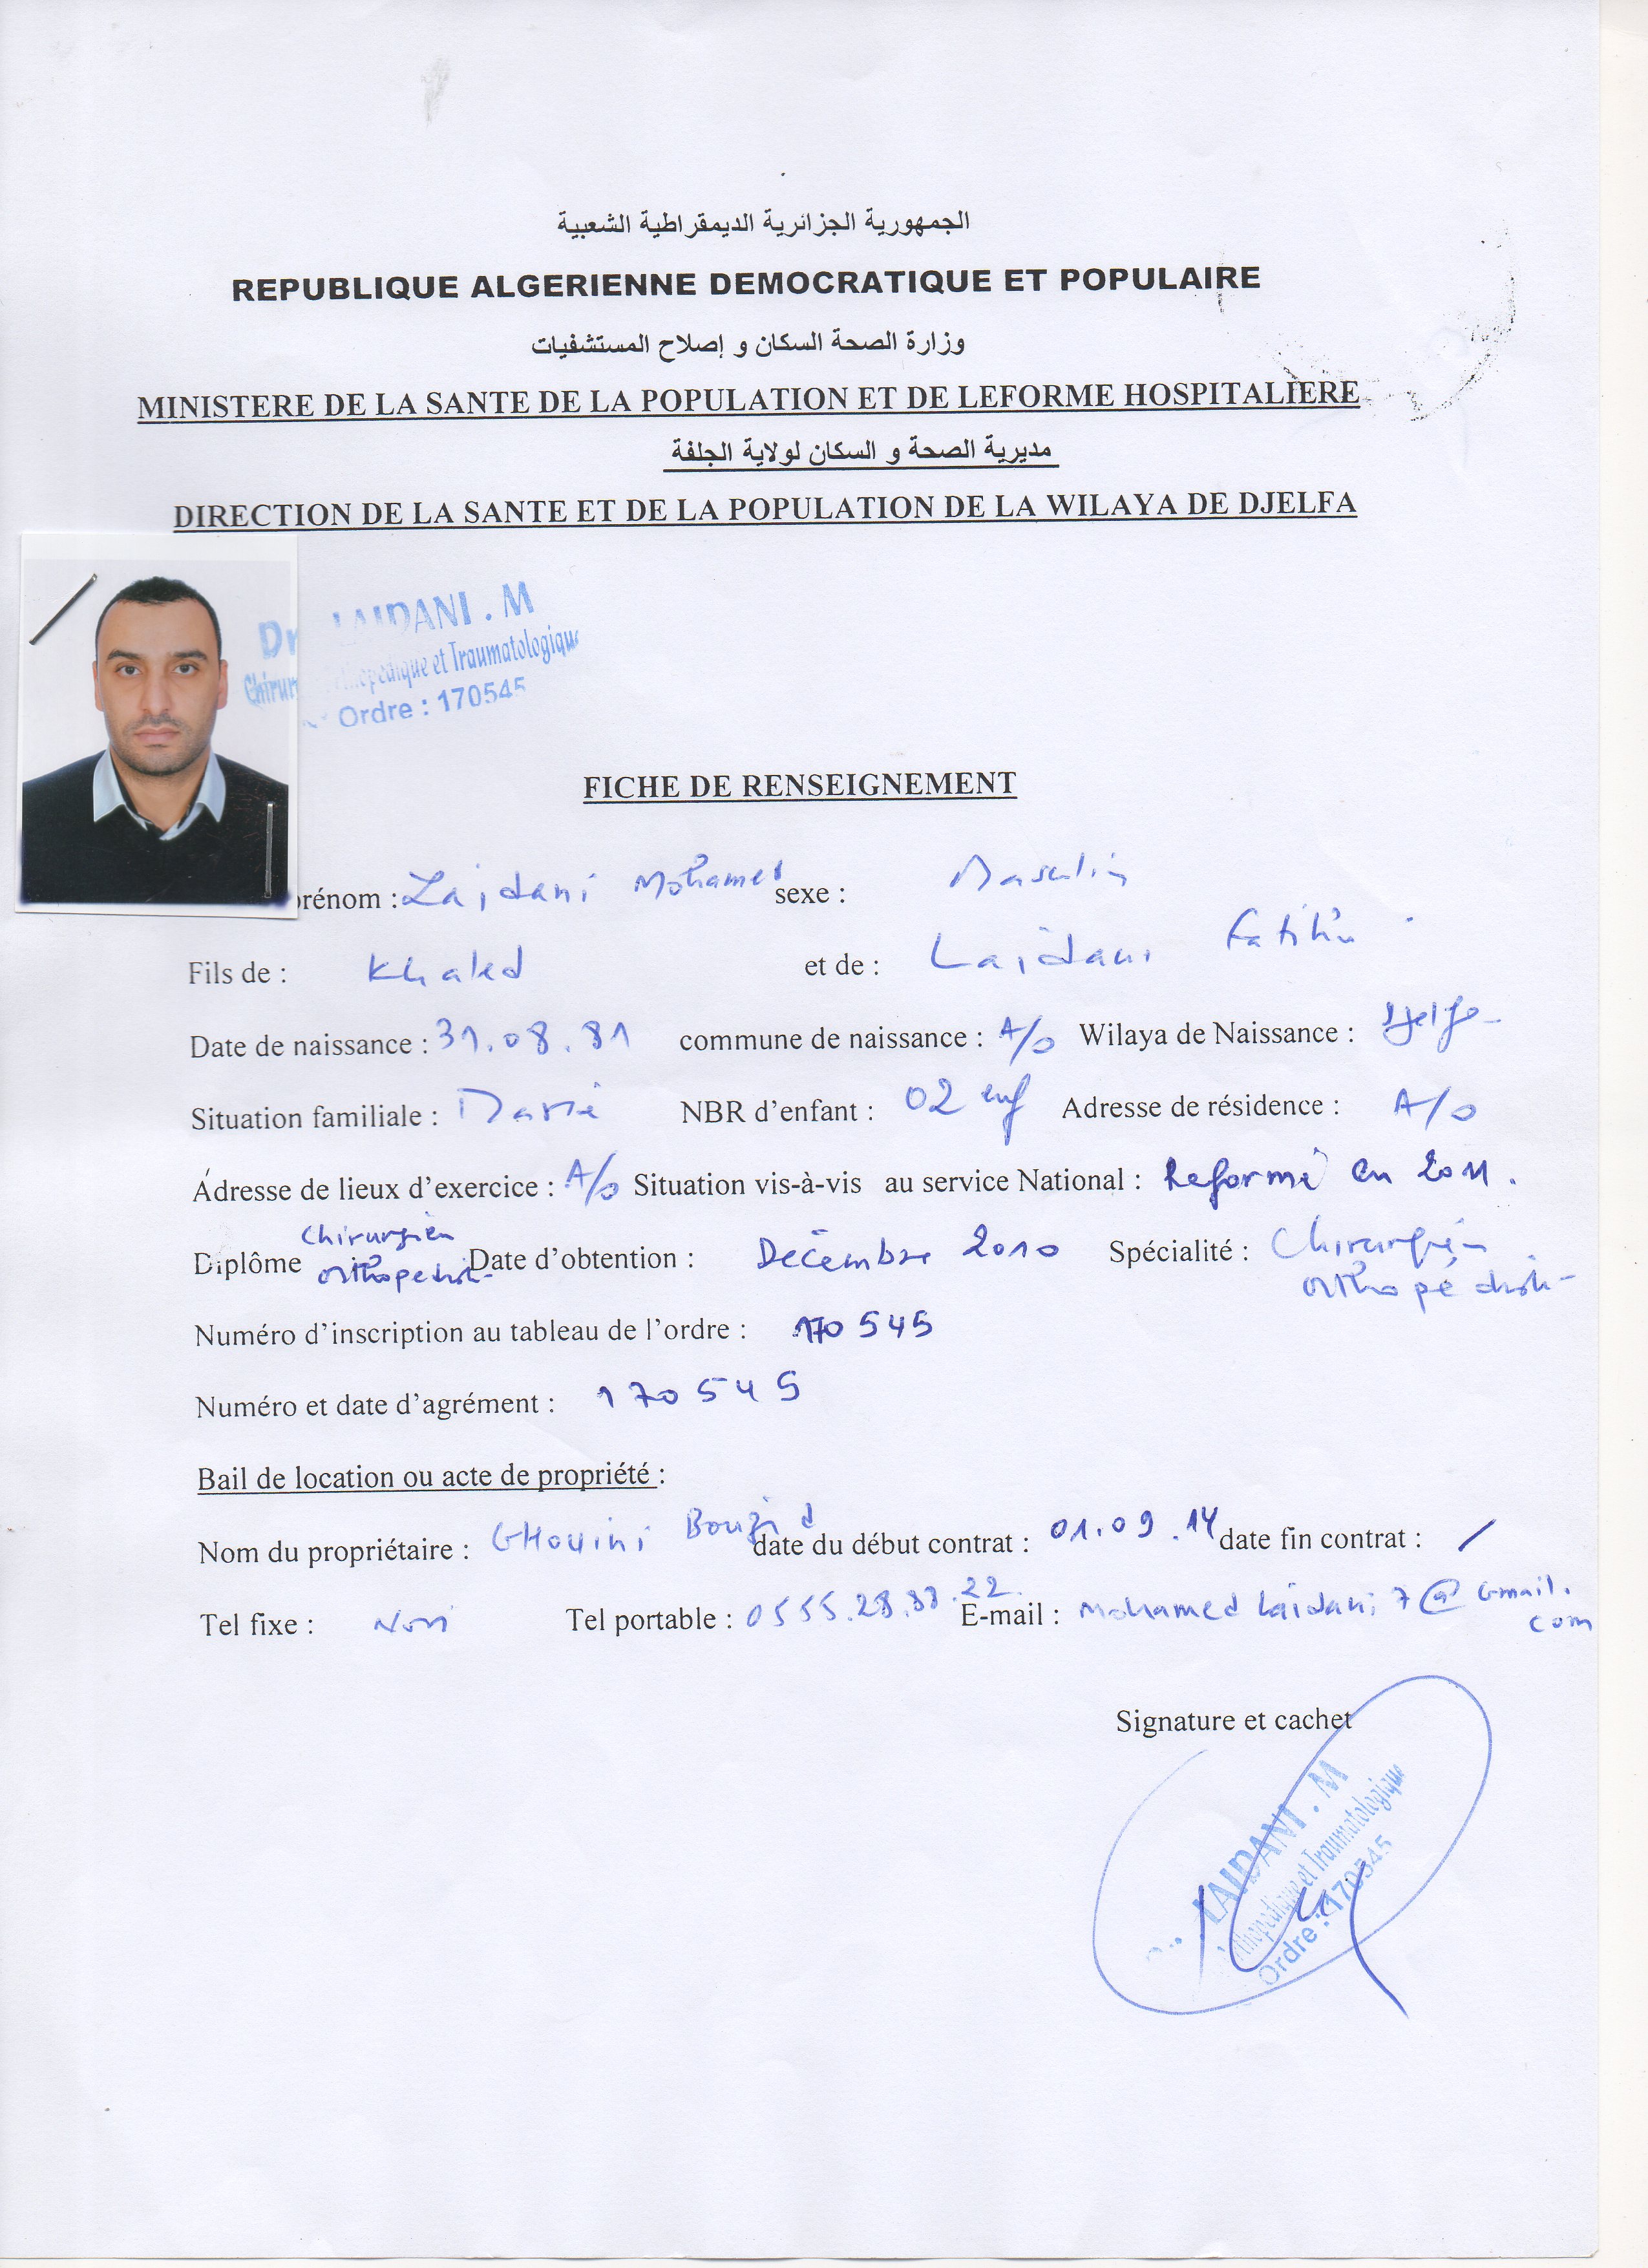 الجمهورية الجزائرية الديمقراطية الشعبية
REPUBLIQUE ALGERIENNE DEMOCRATIQUE ET POPULAIRE
وزارة الصحة السكان و إصلاح المستشفيات
MINISTERE DE LA SANTE DE LA POPULATION ET DE LEFORME HOSPITALIERE
مديرية الصحة و السكان لولاية الجلفة
DIRECTION DE LA SANTE ET DE LA POPULATION DE LA WILAYA DE DJELFA
Dr LAIDANI . M
Orthopédique et Traumatologique
Ordre : 170545
FICHE DE RENSEIGNEMENT
prénom : Laidani Mohamed sexe : Masculin
Fils de : Khaled et de : Laidani
Date de naissance : 31.08.81 commune de naissance : A/O Wilaya de Naissance : Djelfa
Situation familiale : Marié NBR d’enfant : 02 enf Adresse de résidence : A/O
Adresse de lieux d’exercice : A/O Situation vis-à-vis au service National : Reformé en 2011.
Diplôme Chirurgien orthopediste Date d’obtention : Décembre 2010 Spécialité : Chirurgien orthopédiste
Numéro d’inscription au tableau de l’ordre : 170545
Numéro et date d’agrément : 170545
Bail de location ou acte de propriété :
Nom du propriétaire : GHouini Bouzid date du début contrat : 01.09.14 date fin contrat : /
Tel fixe : Non Tel portable : 0555.28.38.22 E-mail : mohamedlaidani7@Gmail.com
Signature et cachet
LAIDANI . M
Orthopédique et Traumatologique
Ordre : 170545